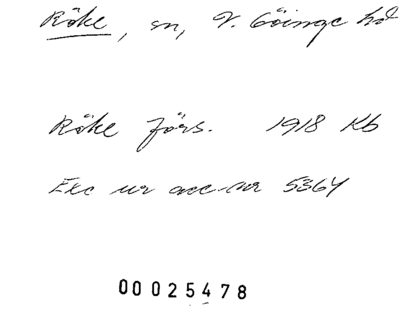 Röke, sn, V. Göinge hd
Röke förs. 1918 Kb
Exc ur acc-nr 5364
00025478